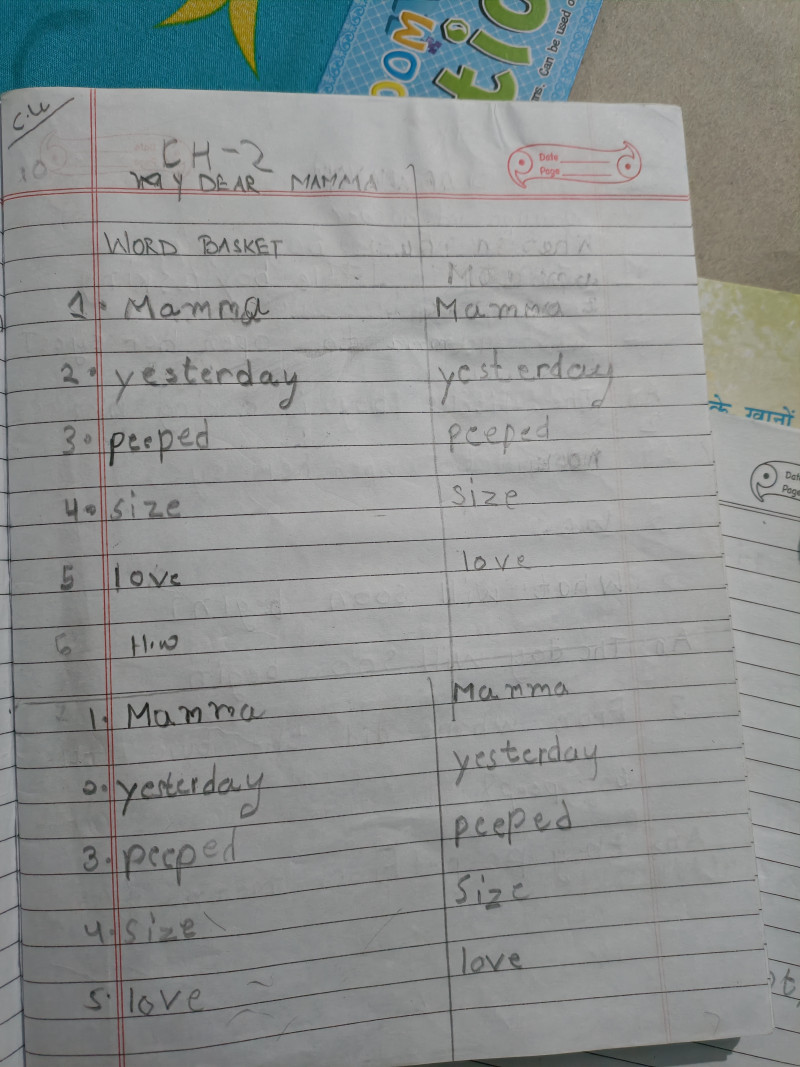 C.W
CH-2
MY DEAR MAMMA
Date
Page
WORD BASKET
1. Mamma Mamma
2. yesterday yesterday
3. peeped peeped
4. size size
5 love love
6 H.W
1. Mamma Mamma
2. yesterday yesterday
3. peeped peeped
4. size size
5. love love
OOM
tio
ns. Can be used o
के खानों
Dat
Page